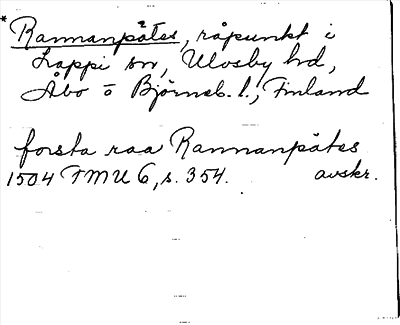 * Rannanpätes, råpunkt i
Lappi sn, Ulvsby hd,
Åbo o Björneb. l., Finland
forsta raa Rannanpätes
1504 FMU 6, s. 354. avskr.